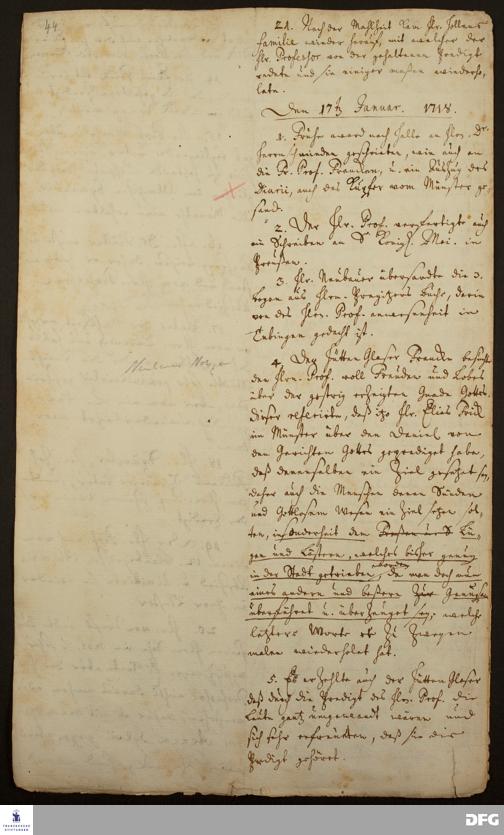 44
21. Nach der Mahlzeit kam Hr.
Familie wieder herauf, mit welcher der
Hr. Professor von der gehaltenen Predigt
redete und sie einiger maßen wiederho-
lete.
Den 17 Januar. 1718.
1. Frühe ward nach Halle an Hrn. Dr.
geschrieben, wie auch an
die Fr. Prof. u. ein Auszug des
Diarii, auch das Kupfer vom Münster ge-
sand.
2. Der Hr. Prof. verfertigte auch
ein Schreiben an Sr Königl. Mai. in
Preußen.
3. Hr. Neubauer übersandte die 3.
Bogen aus Hrn. Pregitzers Buche, darin
von des Hrn. Prof. anwesenheit in
Tubingen gedacht ist.
4. Der Hütten Glaser besuchte
den Hrn. Prof. voll Freuden und Lobes
über der gestrig erzeigten Gnade Gottes.
Dieser referirte, daß Hr. Elias
im Münster über den Daniel von
den Gerichten Gottes geprediget habe,
daß denenselben ein Ziel gesetzet sey,
daher auch die Menschen deren Sünden
und Gottlosem Wesen ein Ziel setzen sol-
ten, insonderheit dem Lü-
gen und Lästern, welches bisher genug
in der Stadt getrieben worden, da man doch nun
eines andern und beßern zur Genüge
überführet u. überzeuget sey; welche
letztere Worte er zu zweyen
malen wiederholet hat.
5. Es erzehlte auch der Hütten Glaser
daß durch die Predigt des Hrn. Prof. die
Leute gantz umgewandt wären und
sich sehr erfreuten, daß sie die
Predigt gehöret.
FRANCKESCHE
STIFTUNGEN
DFG